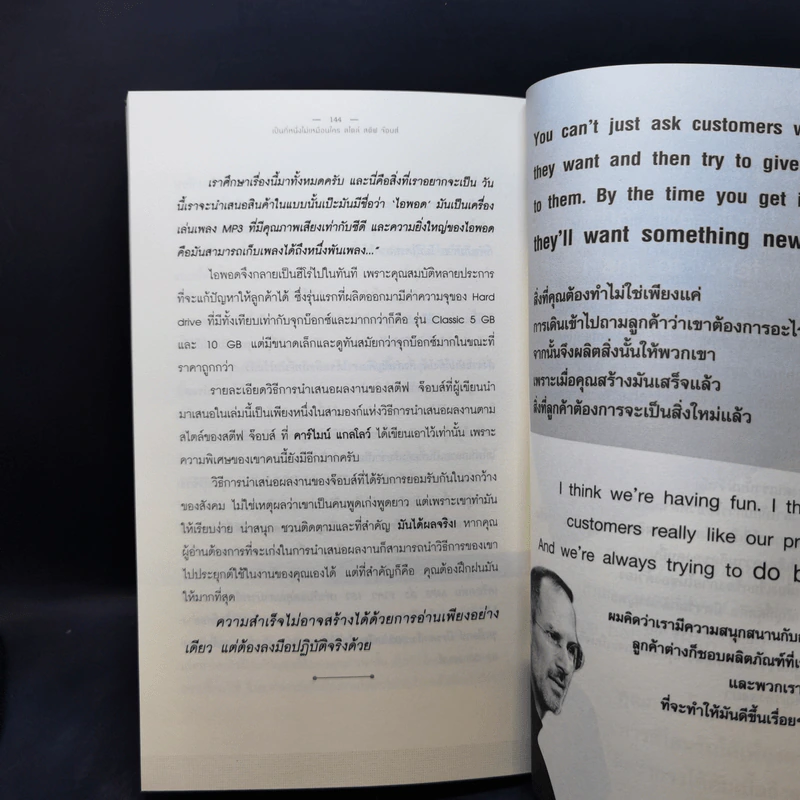 144
เป็นที่หนึ่งไม่เหมือนใคร สไตล์ สตีฟ จ๊อบส์
เราศึกษาเรื่องนี้มาทั้งหมดครับ และนี่คือสิ่งที่เราอยากจะเป็น วัน
นี้เราจะนำเสนอสินค้าในแบบนั้นเป๊ะมันมีชื่อว่า 'ไอพอด' มันเป็นเครื่อง
เล่นเพลง MP3 ที่มีคุณภาพเสียงเท่ากับซีดี และความยิ่งใหญ่ของไอพอด
คือมันสามารถเก็บเพลงได้ถึงหนึ่งพันเพลง..."
ไอพอดจึงกลายเป็นฮีโร่ไปในทันที เพราะคุณสมบัติหลายประการ
ที่จะแก้ปัญหาให้ลูกค้าได้ ซึ่งรุ่นแรกที่ผลิตออกมามีค่าความจุของ Hard
drive ที่มีทั้งเทียบเท่ากับจุกบ๊อกซ์และมากกว่าก็คือ รุ่น Classic 5 GB
และ 10 GB แต่มีขนาดเล็กและดูทันสมัยกว่าจุกบ๊อกซ์มากในขณะที่
ราคาถูกกว่า
รายละเอียดวิธีการนำเสนอผลงานของสตีฟ จ๊อบส์ที่ผู้เขียนนำ
มาเสนอในเล่มนี้เป็นเพียงหนึ่งในสามองก์แห่งวิธีการนำเสนอผลงานตาม
สไตล์ของสตีฟ จ๊อบส์ ที่ คาร์ไมน์ แกลโลว์ ได้เขียนเอาไว้เท่านั้น เพราะ
ความพิเศษของเขาคนนี้ยังมีอีกมากครับ
วิธีการนำเสนอผลงานของจ๊อบส์ที่ได้รับการยอมรับกันในวงกว้าง
ของสังคม ไม่ใช่เหตุผลว่าเขาเป็นคนพูดเก่งพูดยาว แต่เพราะเขาทำมัน
ให้เรียบง่าย น่าสนุก ชวนติดตามและที่สำคัญ มันได้ผลจริง! หากคุณ
ผู้อ่านต้องการที่จะเก่งในการนำเสนอผลงานก็สามารถนำวิธีการของเขา
ไปประยุกต์ใช้ในงานของคุณเองได้ แต่ที่สำคัญก็คือ คุณต้องฝึกฝนมัน
ให้มากที่สุด
ความสำเร็จไม่อาจสร้างได้ด้วยการอ่านเพียงอย่าง
เดียว แต่ต้องลงมือปฏิบัติจริงด้วย
You can't just ask customers
they want and then try to give
to them. By the time you get
they'll want something new
สิ่งที่คุณต้องทำไม่ใช่เพียงแค่
การเดินเข้าไปถามลูกค้าว่าเขาต้องการอะไร
จากนั้นจึงผลิตสิ่งนั้นให้พวกเขา
เพราะเมื่อคุณสร้างมันเสร็จแล้ว
สิ่งที่ลูกค้าต้องการจะเป็นสิ่งใหม่แล้ว
I think we're having fun. I
customers really like our
And we're always trying to do
ผมคิดว่าเรามีความสนุกสนานกับ
ลูกค้าต่างก็ชอบผลิตภัณฑ์ที่
และพวกเรา
ที่จะทำให้มันดีขึ้นเรื่อยๆ